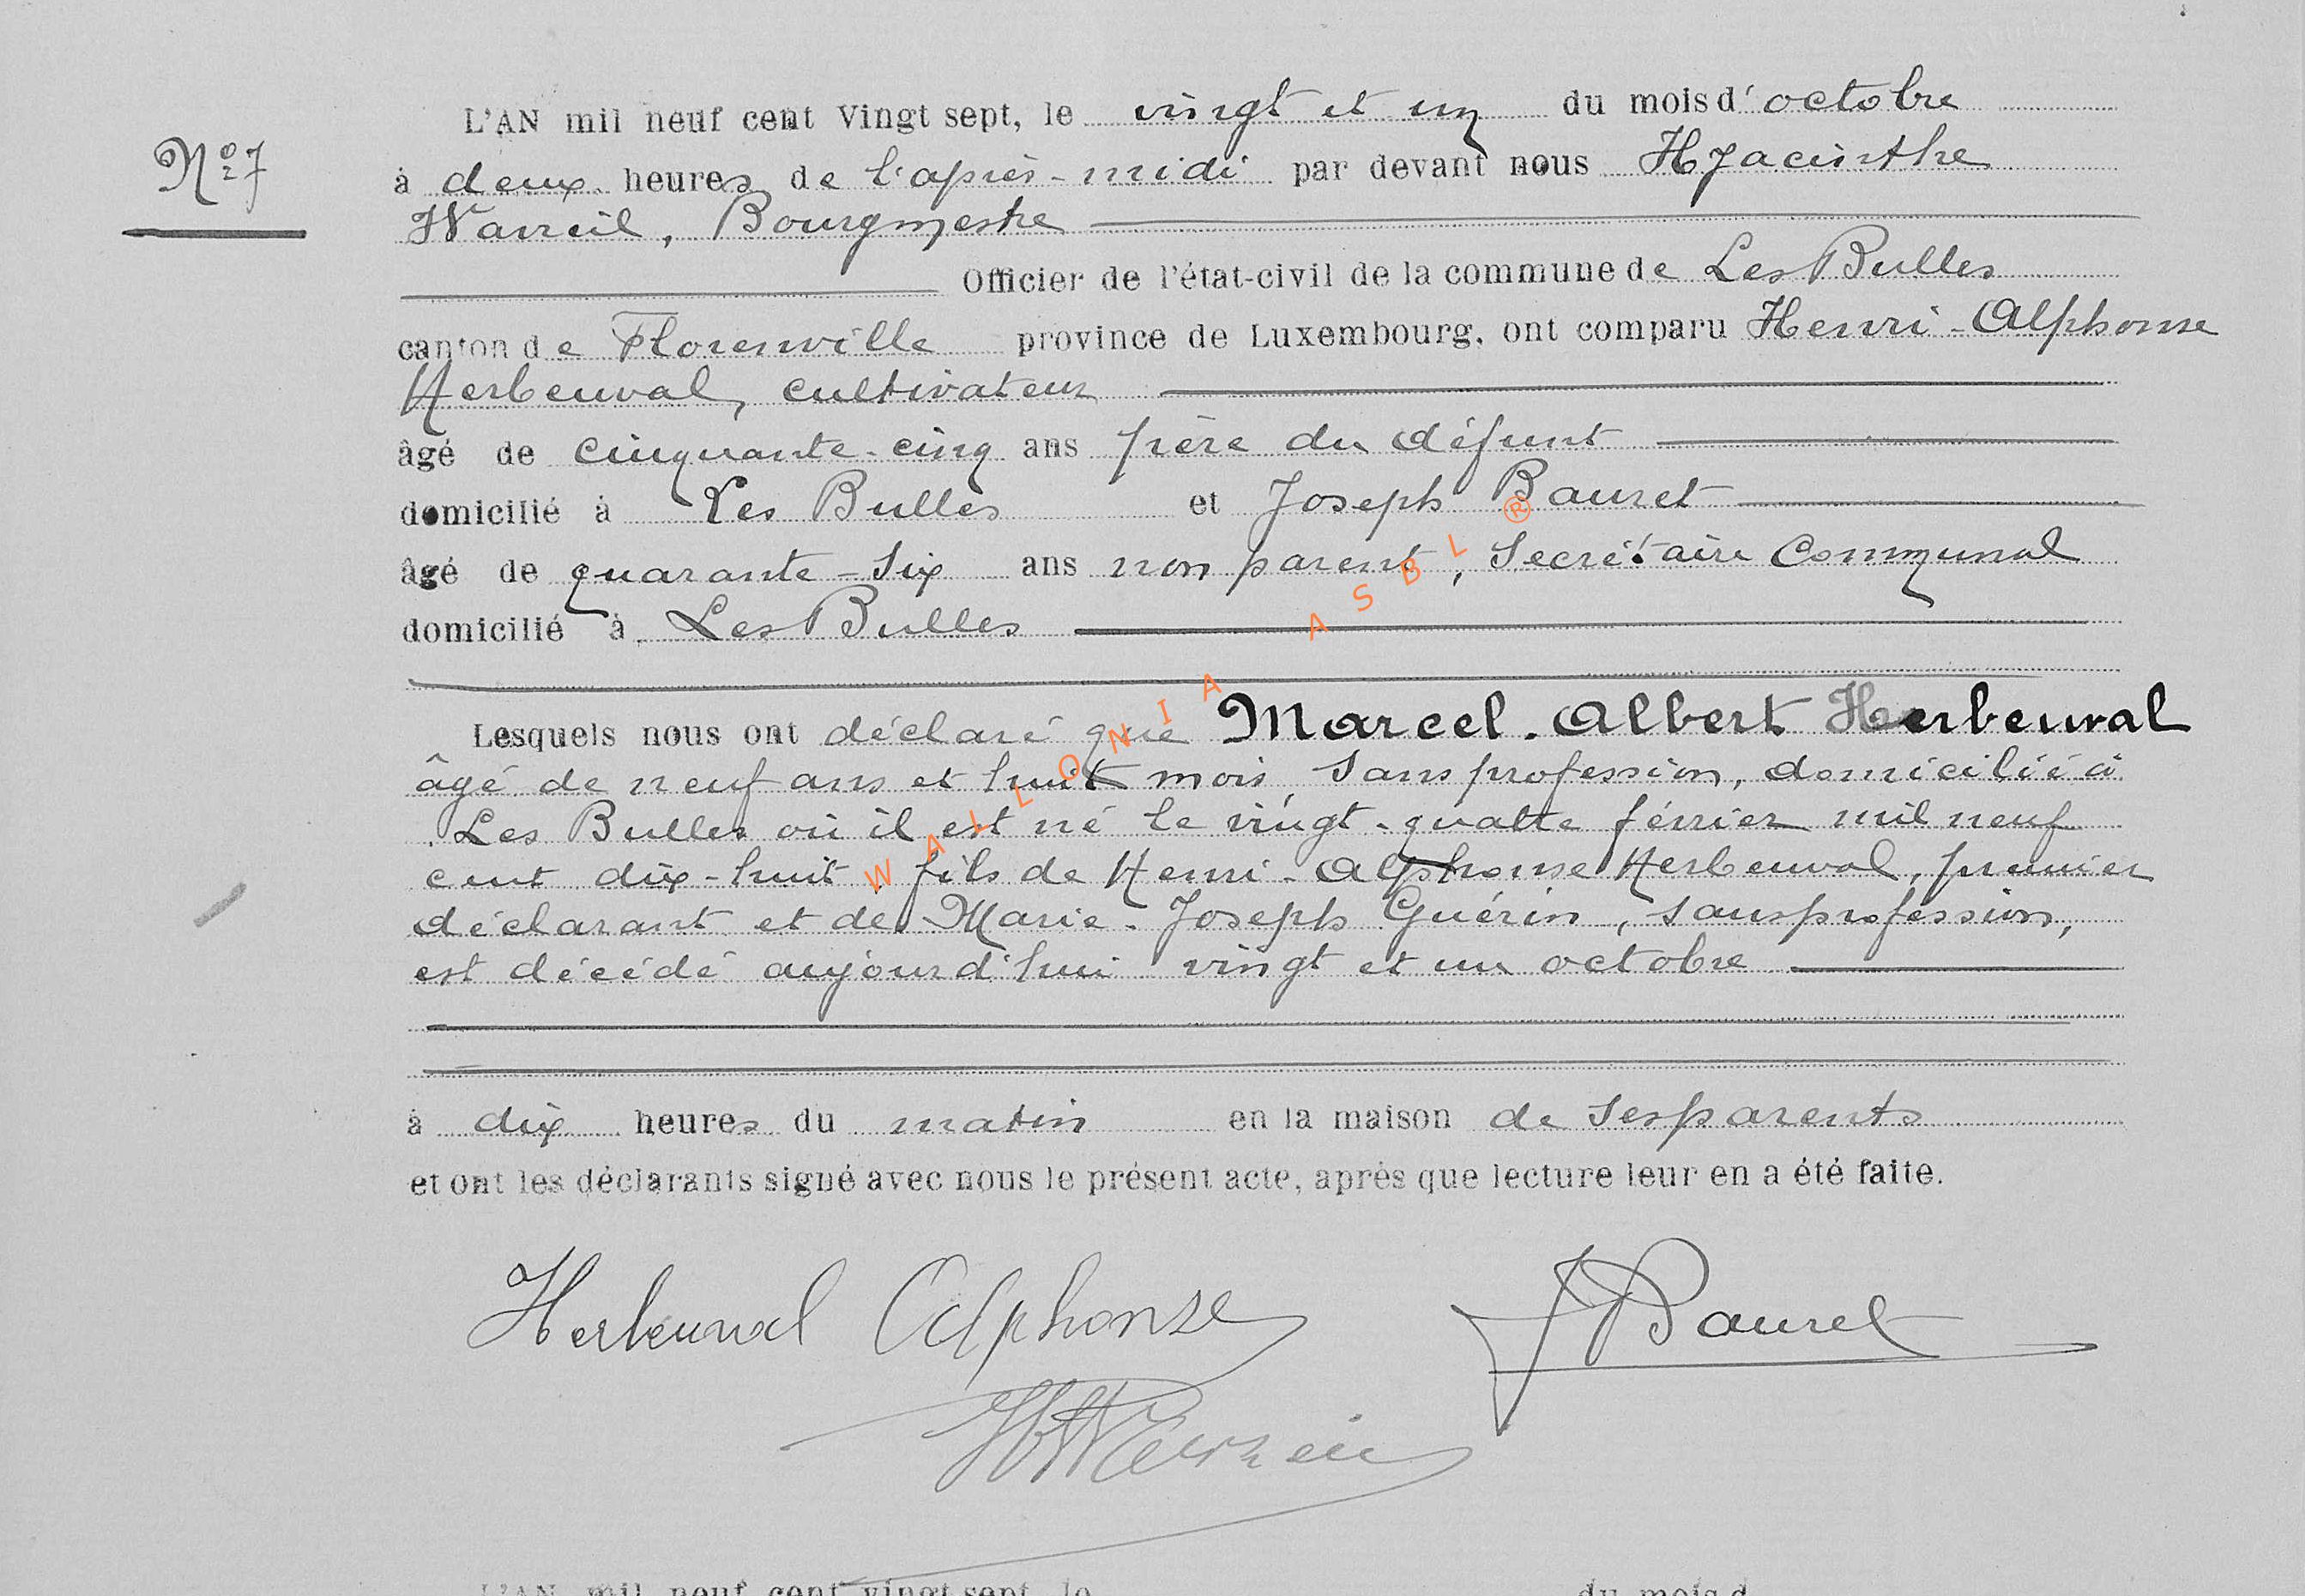 L'AN mil neuf cent Vingt sept, le vingt et un du mois d'octobre
Nº 7
à deux heures de l'après-midi par devant nous Hyacinthe
Warzeil, Bourgmestre
Officier de l'état-civil de la commune de Les Bulles
canton de Florenville province de Luxembourg, ont comparu Henri-Alphonse
Herbeuval, cultivateur
âgé de cinquante-cinq ans père du défunt
domicilié à Les Bulles et Joseph Bauret
âgé de quarante-six ans non parent, Secrétaire Communal
domicilié à Les Bulles
Lesquels nous ont déclaré que Marcel-Albert Herbeuval
âgé de neuf ans et huit mois, sans profession, domicilié à
Les Bulles où il est né le vingt-quatre février mil neuf
cent dix-huit, fils de Henri-Alphonse Herbeuval, premier
déclarant et de Marie-Joseph Guérin, sans profession,
est décédé aujourd'hui vingt et un octobre
à dix heures du matin en la maison de ses parents
et ont les déclarants signé avec nous le présent acte, après que lecture leur en a été faite.
Herbeuval Alphonse
J Bauret
WALLONIA ASBL ®
L'AN mil neuf cent vingt sept, le du mois d